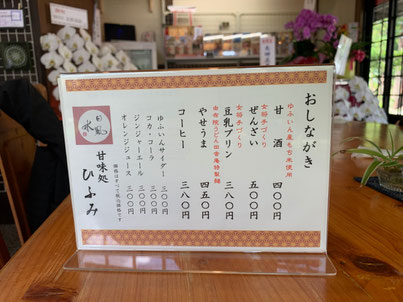 おしながき
ゆふいん産もち米使用
甘酒 四〇〇円
女将手づくり
ぜんざい 五〇〇円
女将手づくり
豆乳プリン 三八〇円
やせうま 四五〇円
コーヒー 三八〇円
ゆふいんサイダー 三〇〇円
コカ・コーラ 三〇〇円
ジンジャーエール 三〇〇円
オレンジジュース 三〇〇円
甘味処
ひふみ
価格はすべて税込価格です